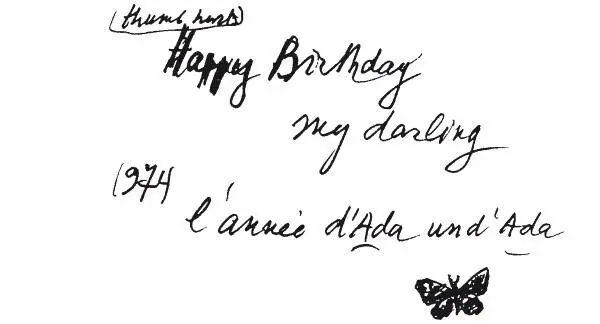 (thumb hurts)
Happy Birthday
my darling
1974
l'année d'Ada und'Ada